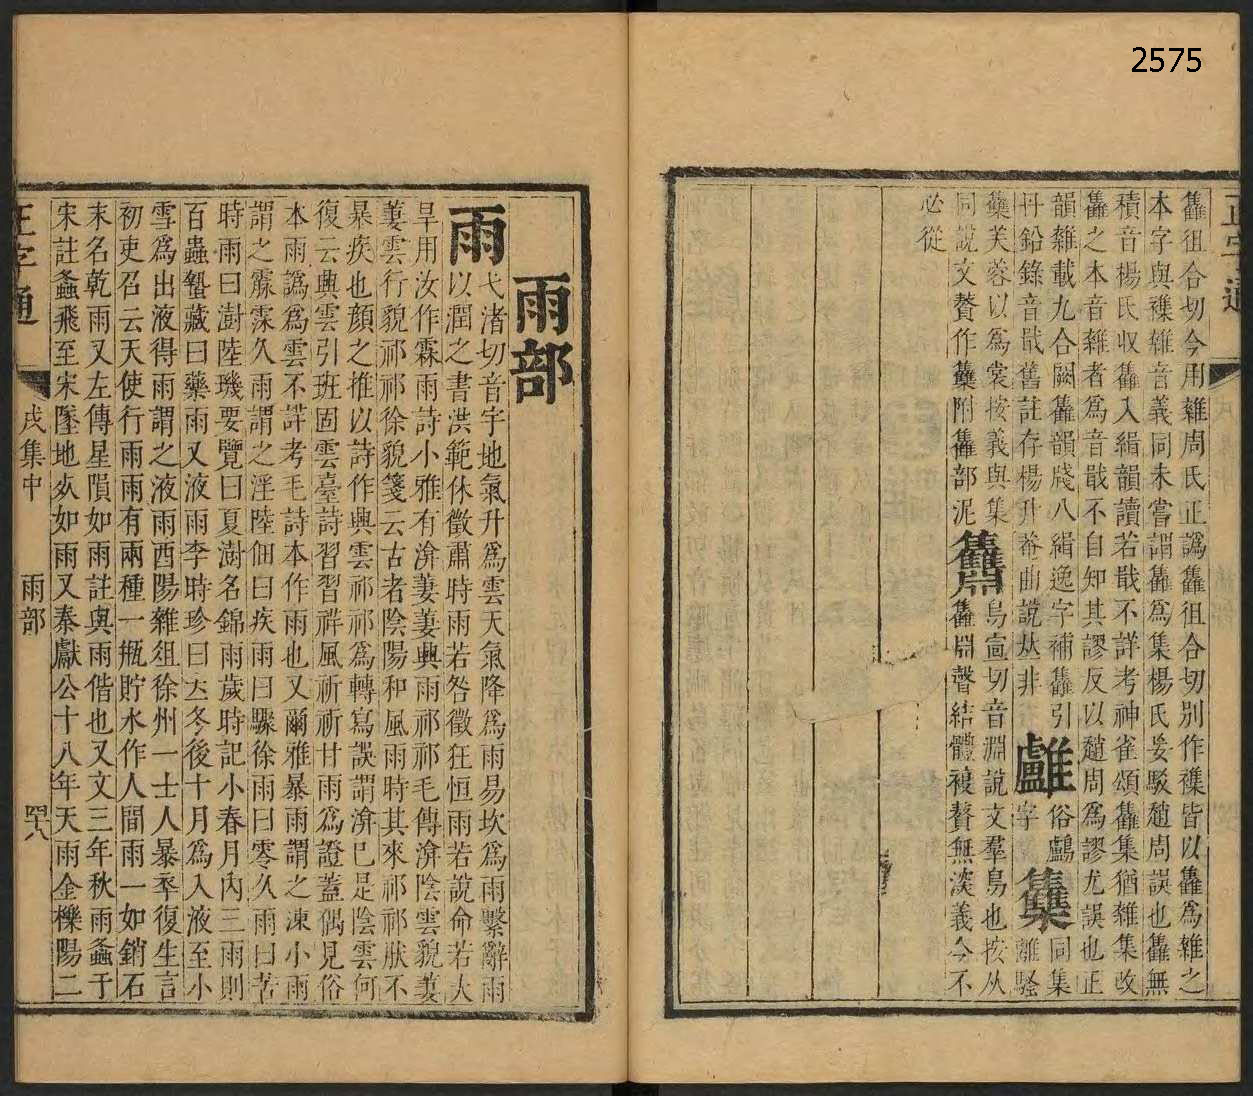 2575
正字通
雥徂合切今用雜周氏正譌雥徂合切別作襍皆以雥爲雜之
本字與襍雜音義同未嘗謂雥爲集楊氏妥駁趙周誤也雥無
積音楊氏収雥入緝韻讀若戢不詳考神雀頌雥集猶雜集攺
雥之本音雜者爲音戢不自知其謬反以趙周爲謬尤誤也正
韻雜載九合闕雥韻牋八緝逸字補雥引 俗鸕同集
丹鉛錄音戢舊註存楊升菴曲說𠀤非 雦字 離騷
雧芙蓉以爲裳按義與集 鳥宣切音淵說文羣鳥也按从
同說文贅作雧附雥部泥 雥淵聲結體複贅無淡義今不
必從
雨部
雨弋渚切音宇地氣升爲雲天氣降爲雨易坎爲雨繫辭雨
以潤之書洪範休徵肅時雨若咎徵狂恒雨若說命若大
旱用汝作霖雨詩小雅有渰萋萋興雨祁祁毛傳渰陰雲貌萋
萋雲行貌祁祁徐貌箋云古者陰陽和風雨時其來祁祁肰不
暴疾也顏之推以詩作興雲祁祁爲轉寫誤謂渰巳是陰雲何
復云興雲引班固雲臺詩習習祥風祈祈甘雨爲證蓋偶見俗
本雨譌爲雲不詳考毛詩本作雨也又爾雅暴雨謂之涷小雨
謂之霢霂久雨謂之淫陸佃曰疾雨曰驟徐雨曰零久雨曰苦
時雨曰澍陸璣要覽曰夏澍名錦雨歲時記小春月內三雨則
百蟲蟄藏曰藥雨又液雨李時珍曰立冬後十月爲入液至小
雪爲出液得雨謂之液雨酉陽雜俎徐州一士人暴卒復生言
初吏召云天使行雨雨有兩種一瓶貯水作人間雨一如銷石
末名乾雨又左傳星隕如雨註與雨偕也又文三年秋雨螽于
宋註螽飛至宋墜地𠛱如雨又秦獻公十八年天雨金櫟陽二
正字通
戌集中
雨部
四八